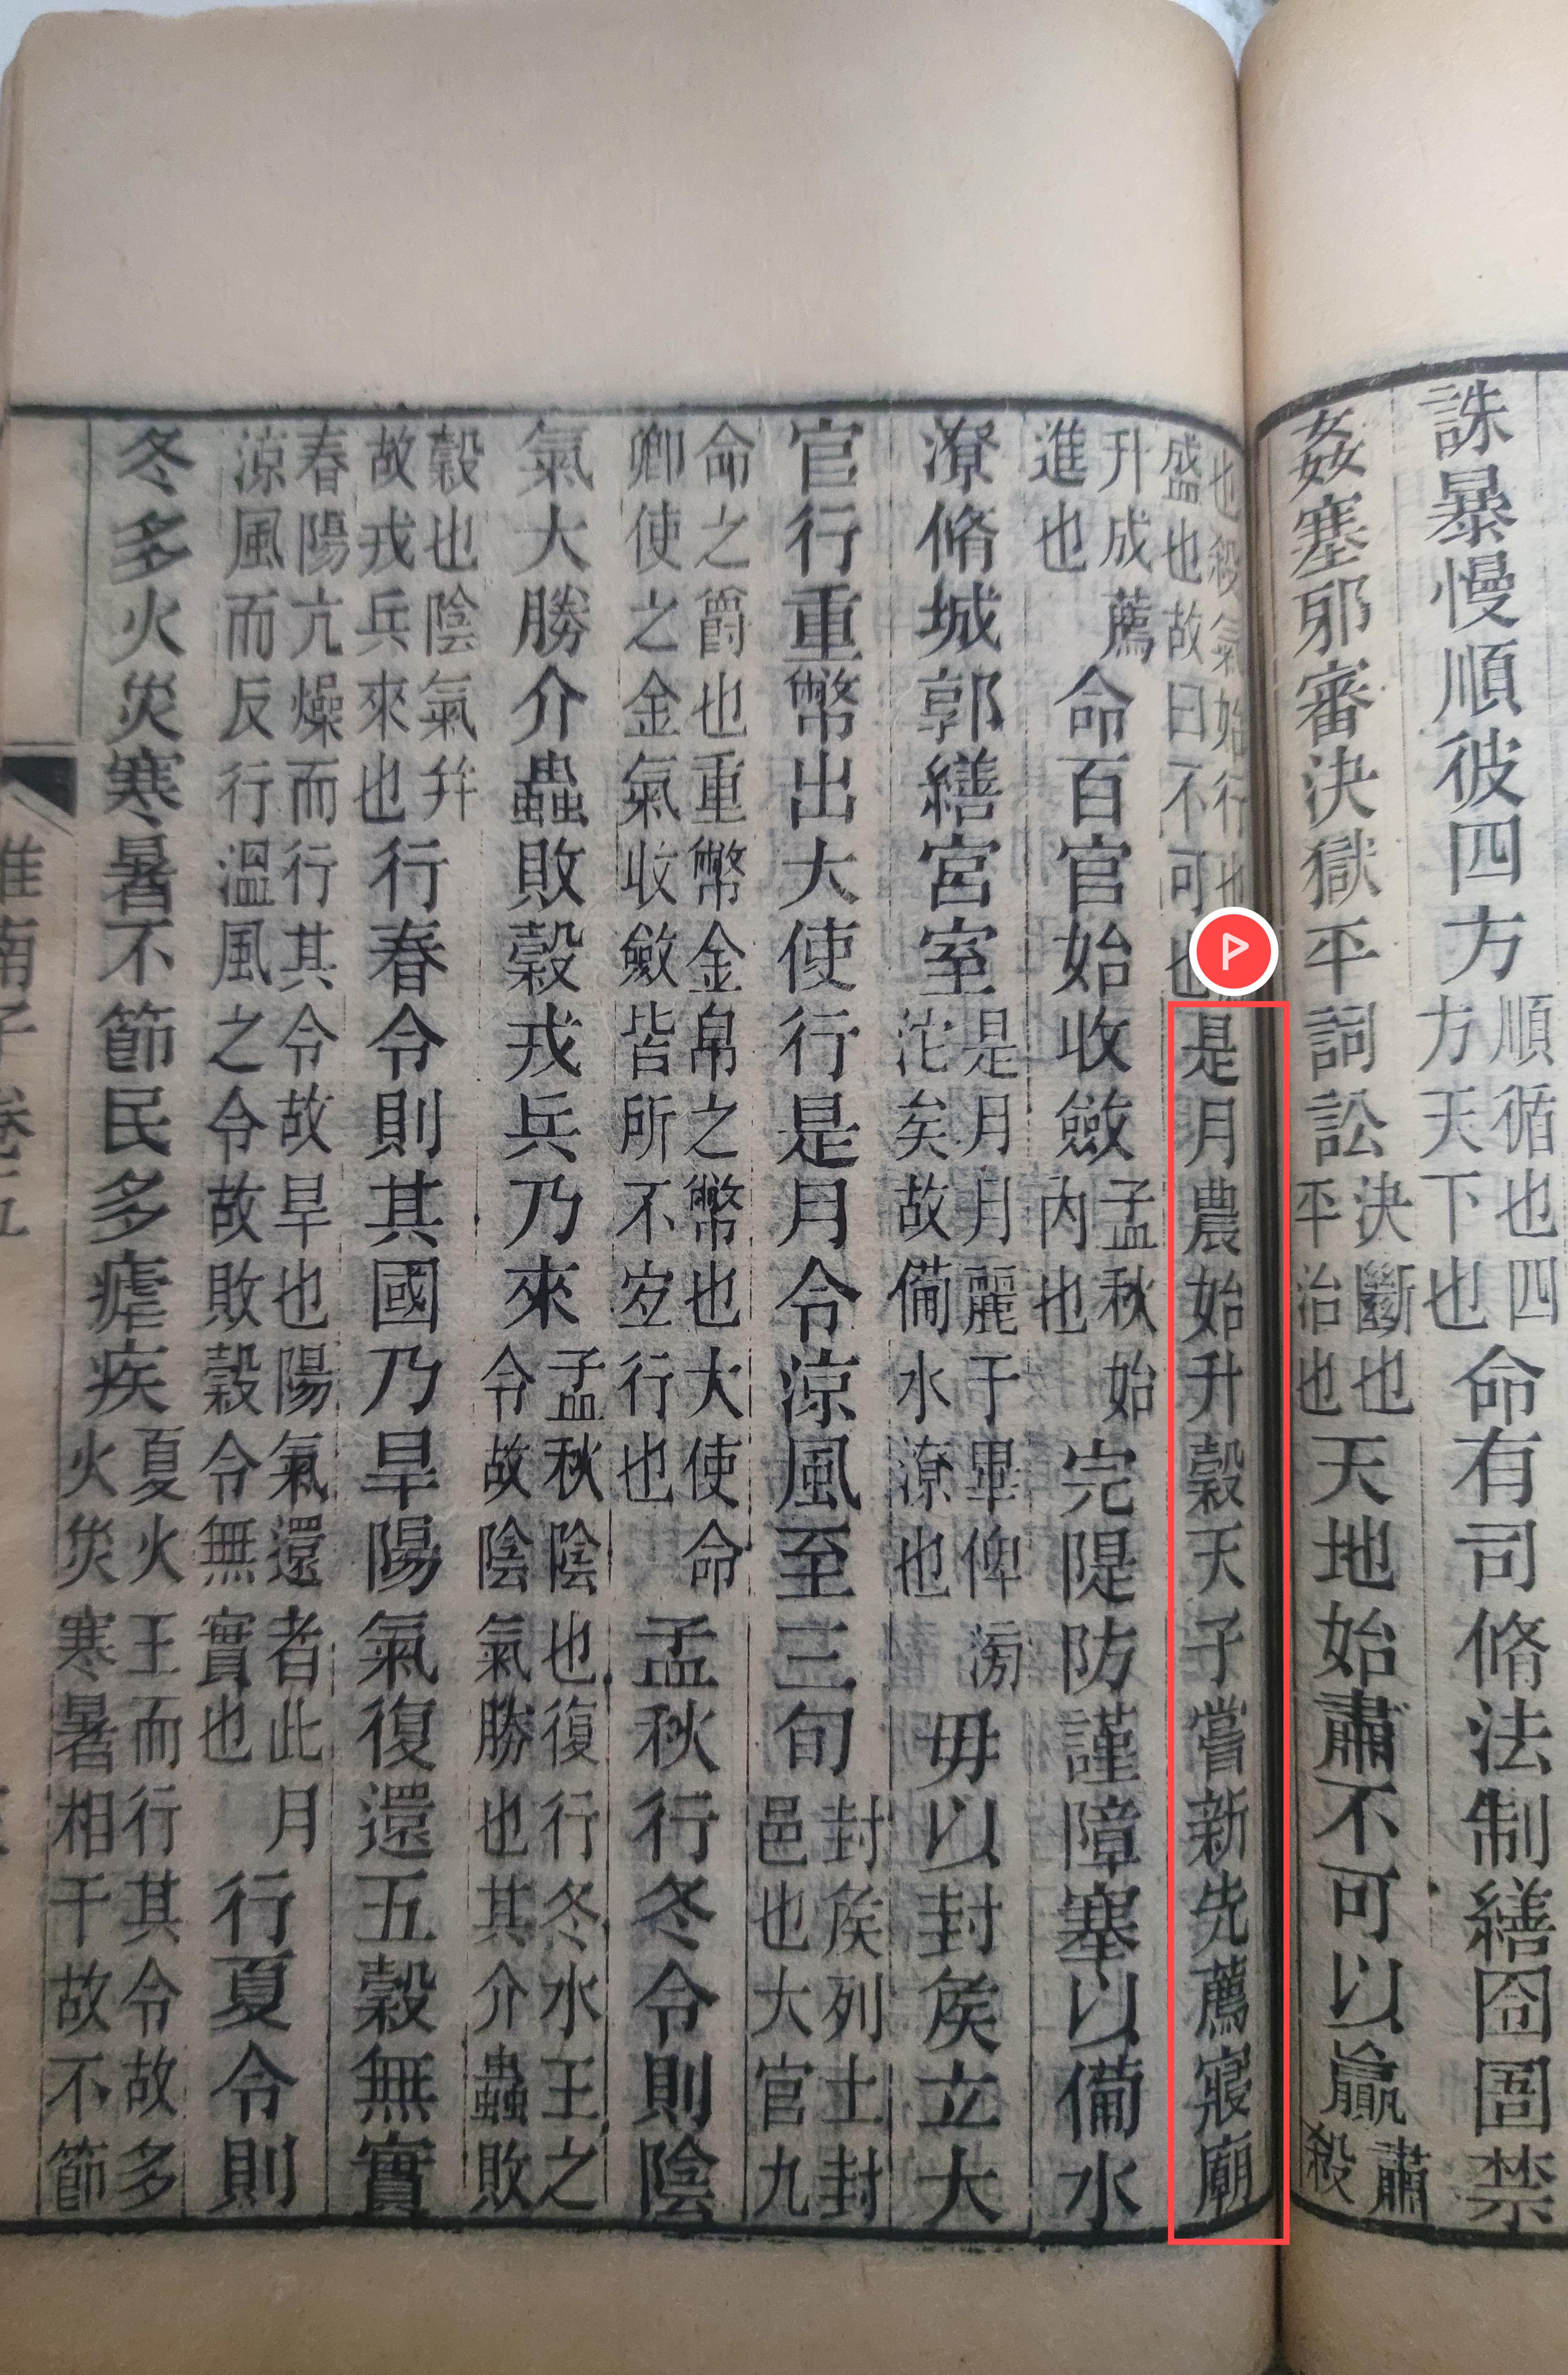 誅暴慢順彼四方順循也四方天下也命有司脩法制繕囹圄禁
姦塞邪審決獄平詞訟決斷也平治也天地始肅不可以贏肅殺
也殺氣始行也盛也故曰不可也是月農始升穀天子嘗新先薦寢廟
升成薦進也命百官始收斂孟秋始内也完隄防謹障塞以備水
潦脩城郭繕宮室是月月麗于畢俾滂沱矣故備水潦也毋以封矦立大
官行重幣出大使行是月令涼風至三旬封矦列土封邑也大官九
命之爵也重幣金帛之幣也大使命卿使之金氣收斂皆所不宜行也孟秋行冬令則陰
氣大勝介蟲敗穀戎兵乃來孟秋陰也復行冬水王之令故陰氣勝也其介蟲敗
穀也陰氣并故戎兵來也行春令則其國乃旱陽氣復還五穀無實
春陽亢燥而行其令故旱也陽氣還者此月涼風而反行溫風之令故敗穀令無實也行夏令則
冬多火災寒暑不節民多瘧疾夏火王而行其令故多火災寒暑相干故不節
淮南子卷五